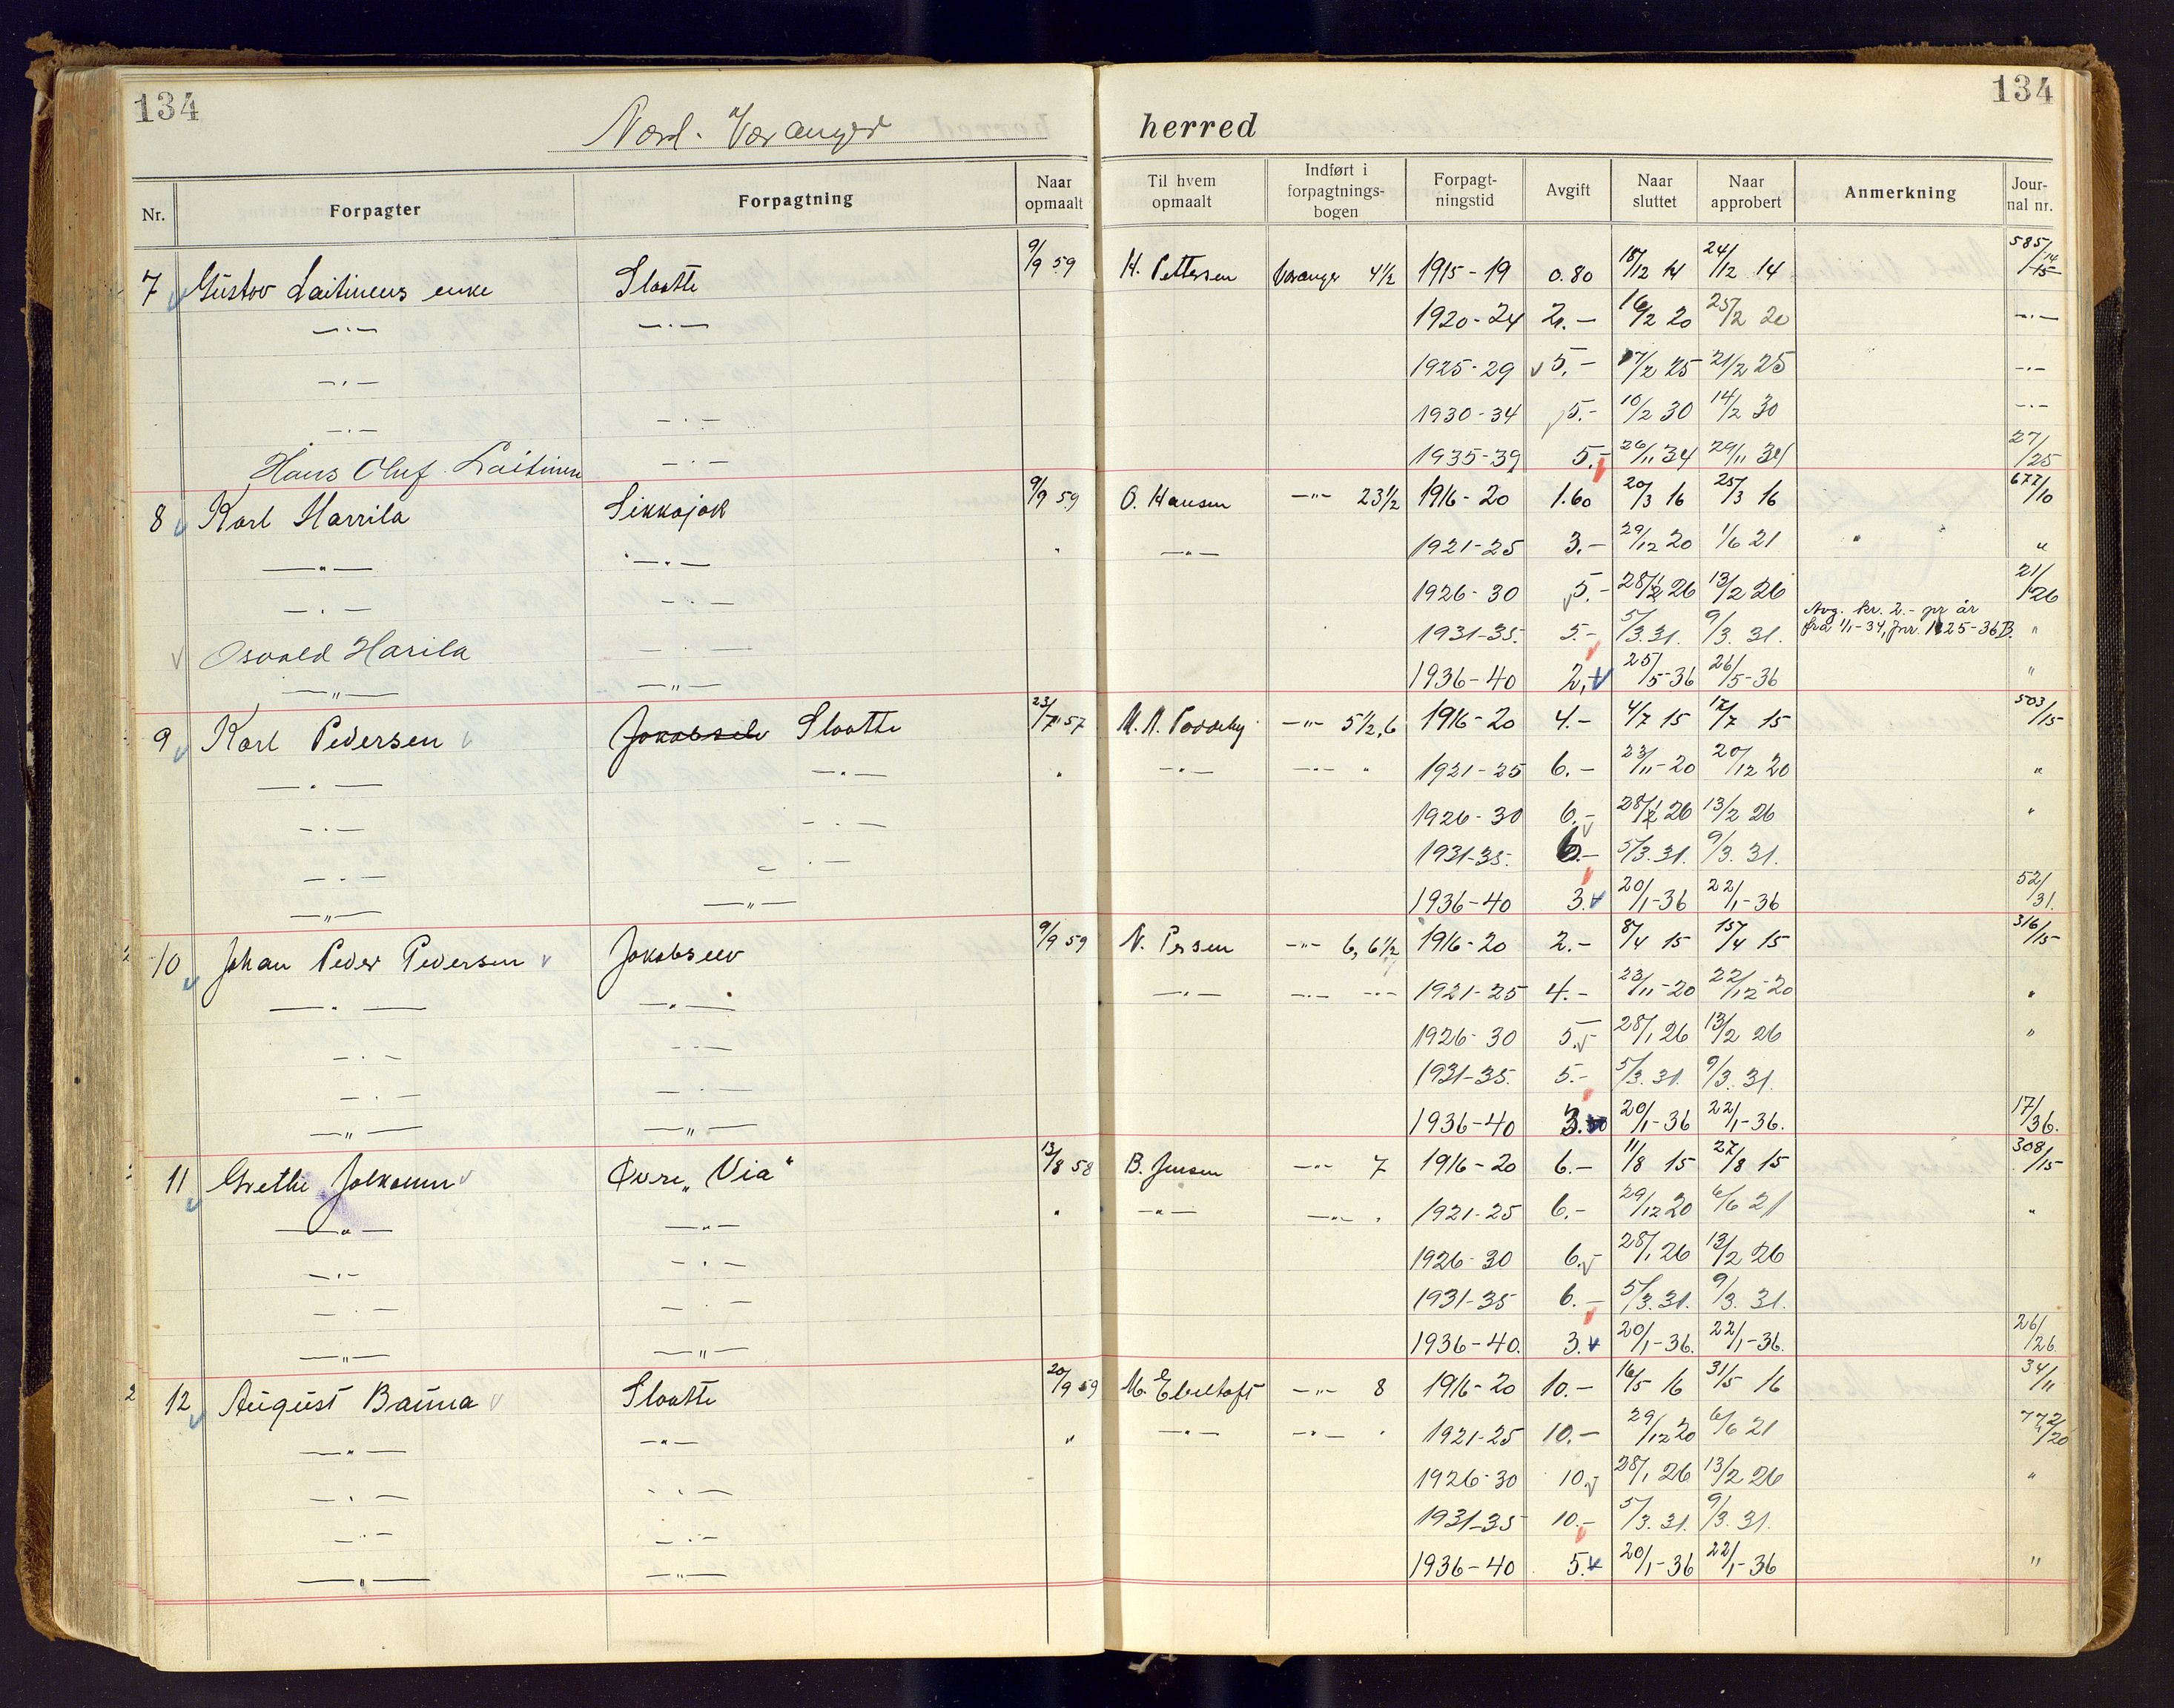 134
134
Nord-Varanger herred
Nr. Forpagter Forpagtning Naar opmaalt Til hvem opmaalt Indført i forpagtnings-bogen Forpagt-ningstid Avgift Naar sluttet Naar approbert Anmerkning Jour-nal nr.
7 Gustav Laitinens enke Slaatte 9/9 59 H. Pettersen Varanger 4½ 1915-19 0.80 18/12 14 24/12 14 585/14 15
—"— —"— 1920-24 2.- 16/2 20 25/2 20 —"—
—"— 1925-29 5.- 17/2 25 21/2 25 —"—
—"— —"— 1930-34 5.- 10/2 30 14/2 30 —"—
Hans Oluf Laitinen —"— 1935-39 5.- 26/11 34 29/11 34 27/25
8 Karl Harrila Sikkajok 9/9 59 O. Hansen —"— 23½ 1916-20 1.60 20/3 16 25/3 16 677/10
—"— —"— " —"— 1921-25 3.- 29/12 20 1/6 21 "
—"— —"— 1926-30 5.- 28/1 26 13/2 26 21/26
Avg. kr. 2.- pr år
Osvald Harila —"— 1931-35. 5.- 5/3. 31. 9/3. 31. fra 1/1-34, jnr. 1125-36 B. "
—"— —"— 1936-40 2.- 25/5-36 26/5-36 "
9 Karl Pedersen Jakobselv Slaatte 23/7 57 —"— 5½,6 1916-20 4.- 4/7 15 17/7 15 503/15
—"— —"— " —"— —"— " 1921-25 6.- 23/11-20 20/12 20 "
—"— —"— 1926-30 6.- 28/1 26 13/2 26 "
—"— —"— 1931-35. 6.- 5/3. 31. 9/3. 31.
—"— —"— 1936-40 3. 20/1-36 22/1-36 52/31.
10 Johan Peder Pedersen Jakobselv 9/9 59 N. Persen —"— 6, 6½ 1916-20 2.- 8/4 15 15/4 15 316/15
—"— —"— —"— —"— —"— 1921-25 4.- 23/11-20 22/12-20 "
—"— —"— 1926-30 5.- 28/1 26 13/2 26 "
—"— —"— 1931-35. 5.- 5/3. 31. 9/3. 31.
—"— —"— 1936-40 3. 20/1-36 22/1-36. 17/36.
11 Grethe Jolkonen Øvre „Via" 13/8 58 B. Jensen —"— 7 1916-20 6.- 11/8 15 27/8 15 308/15
—"— —"— " —"— —"— " 1921-25 6.- 29/12 20 6/6 21 "
—"— —"— 1926-30 6.- 28/1 26 13/2 26
—"— —"— 1931-35 6.- 5/3. 31. 9/3. 31.
—"— —"— 1936-40. 3. 20/1-36. 22/1-36. 26/26
2 12 August Banna Slaatte 20/9 59 M. Ebeltoft —"— 8 1916-20 10.- 16/5 16 31/5 16 34/11
—"— —"— " —"— —"— " 1921-25 10.- 29/12 20 6/6 21 772/20
—"— —"— 1926-30 10.- 28/1 26 13/2 26 "
—"— —"— 1931-35 10.- 5/3. 31. 9/3. 31.
—"— —"— 1936-40 5. 20/1-36 22/1-36 "